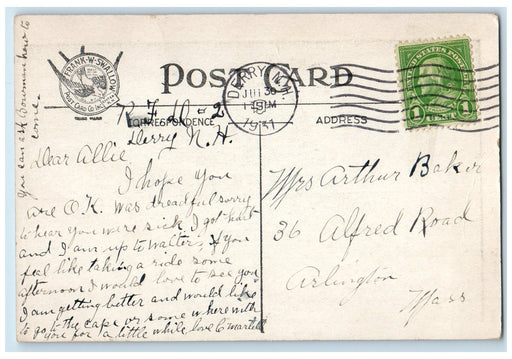 FRANK·W·SWALLOW
POST CARD CO. INC.
POST CARD
DERRY, N.H.
JUL 30
1931
UNITED STATES POSTAGE
1 1
CORRESPONDENCE
ADDRESS
R.F.D-2
Derry N.H.
Dear Allie
I hope you
are O.K. was dreadful sorry
to hear you were sick, I got hurt
and I am up to Walters, if you
feel like taking a ride some
afternoon I would love to see you
I am getting better and would like
to go to the cape or some where with
you for a little while love
you can ask Bowman how to
come.
Mrs Arthur Baker
36 Alfred Road
Arlington
Mass